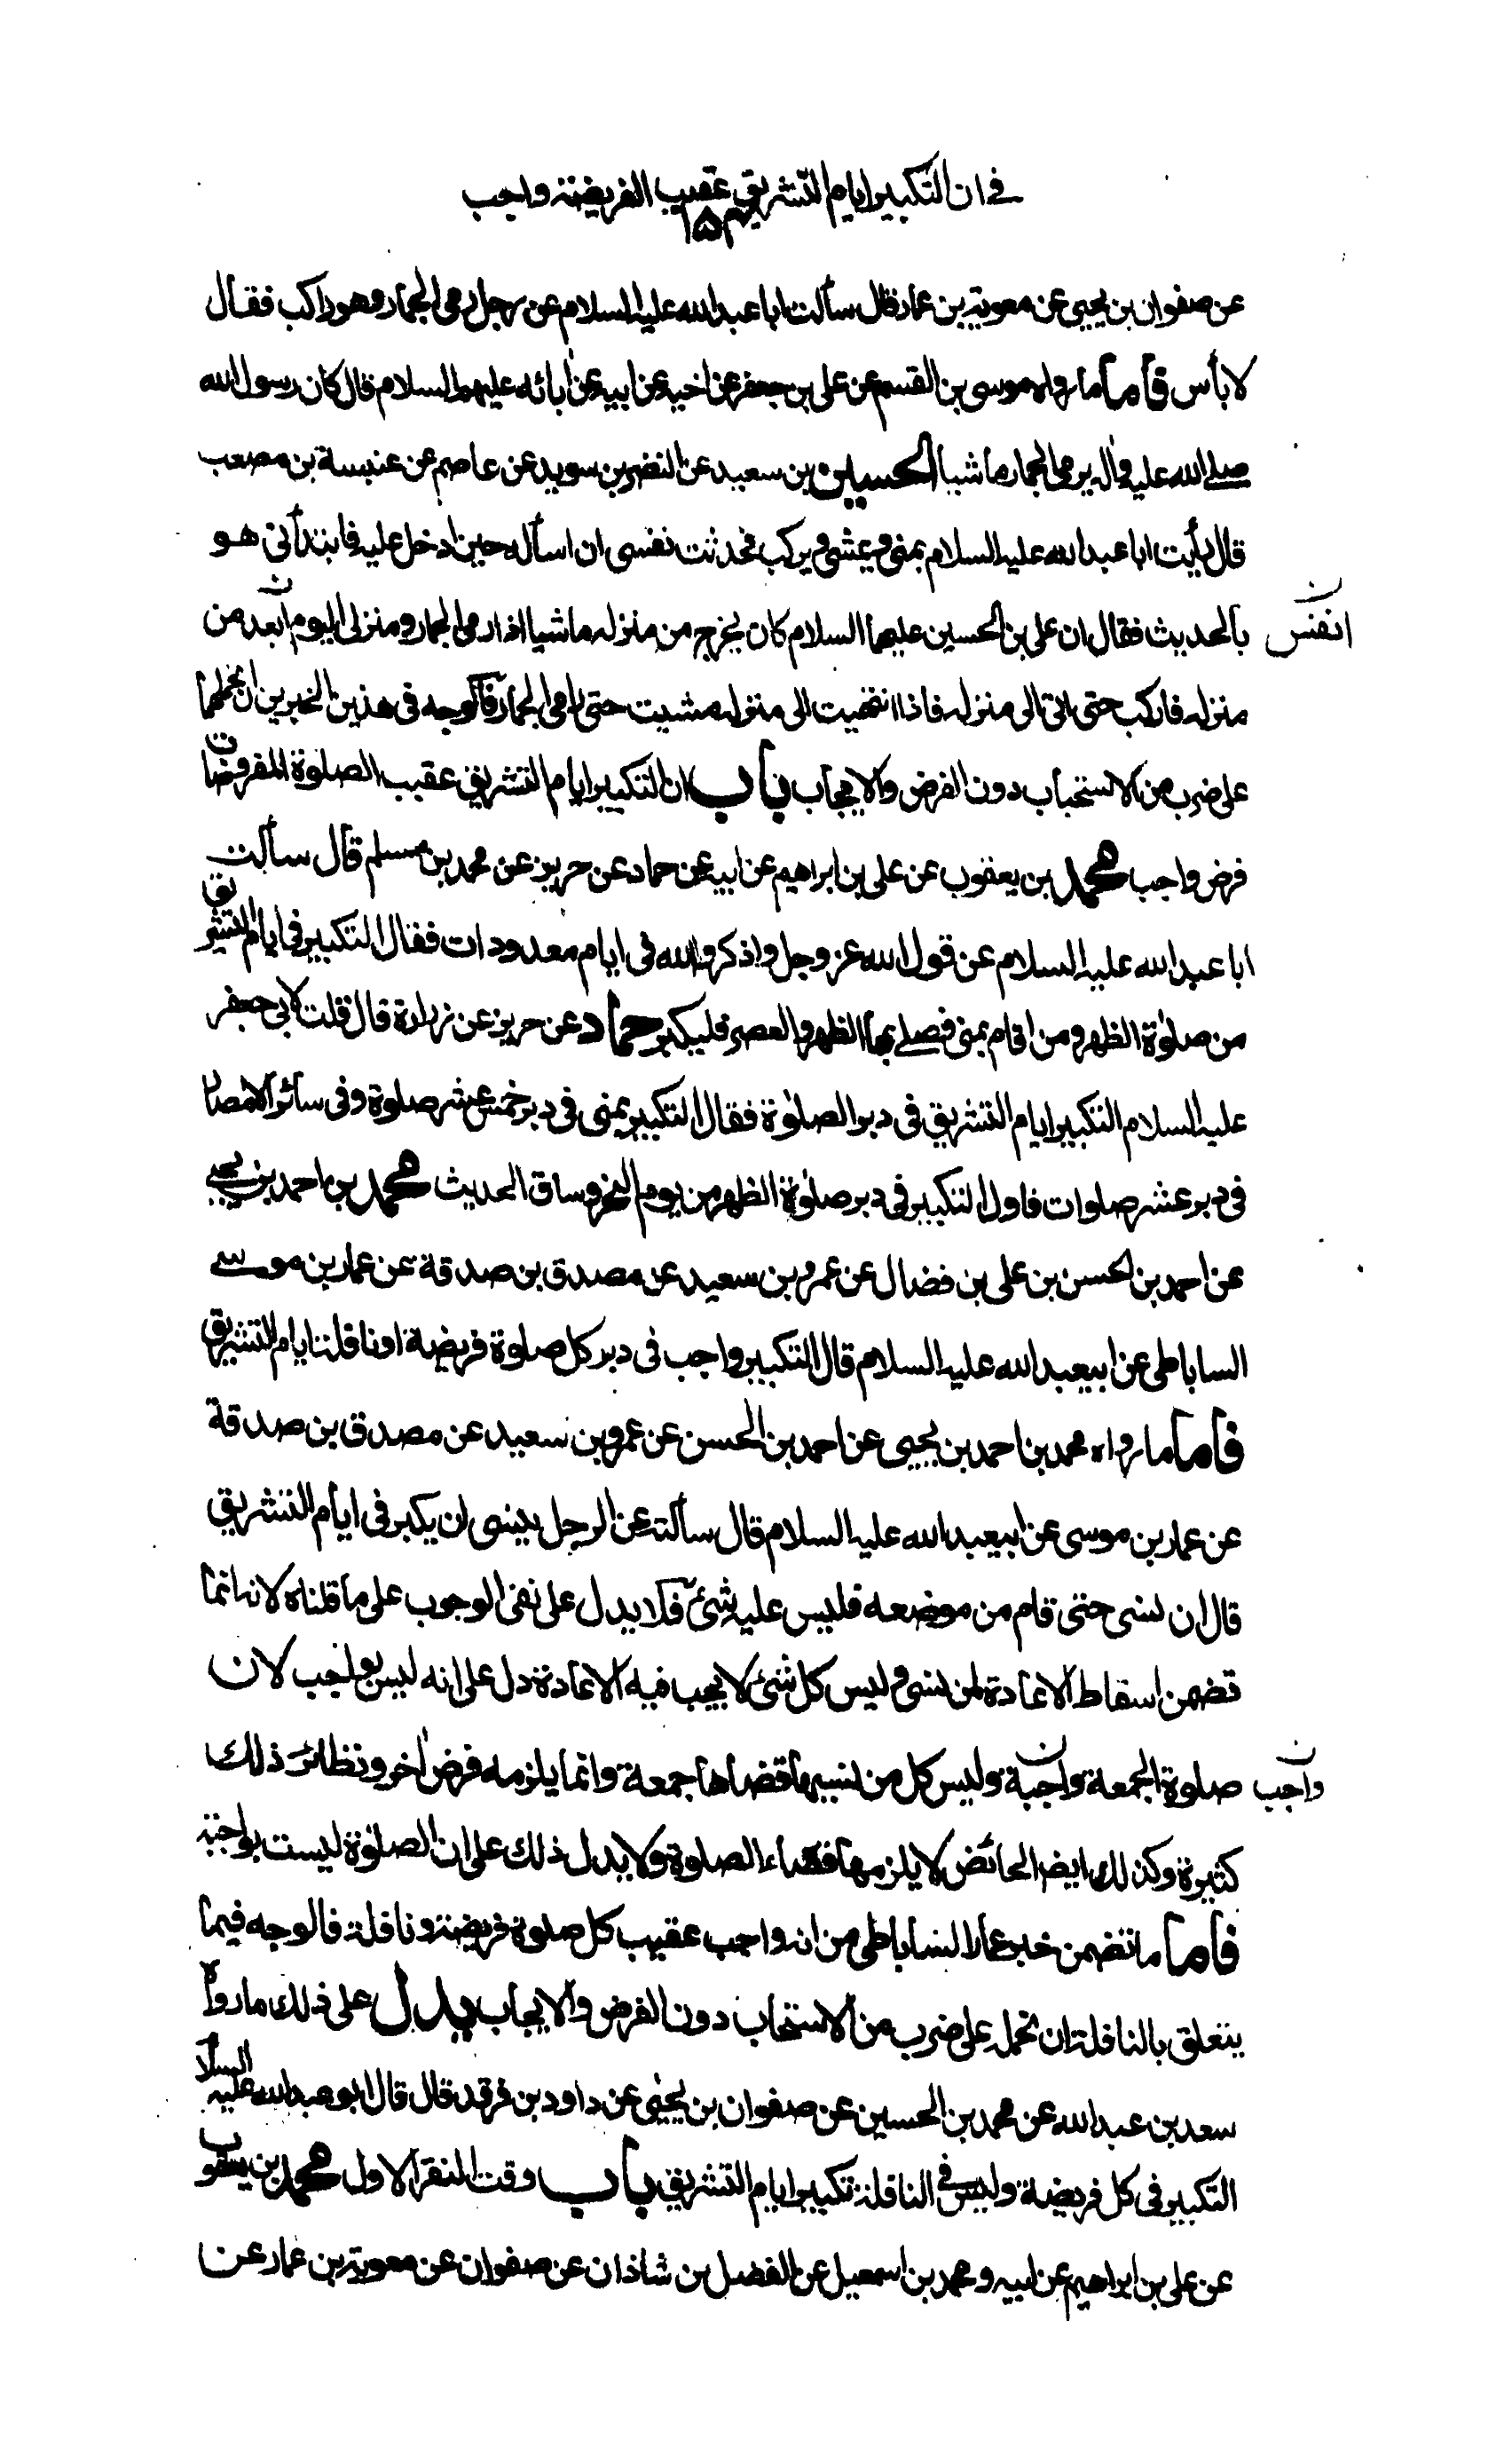 في ان التكبير ايام التشريق عقيب الفريضة واجب
١٥٣
عن صفوان بن يحيى عن معوية بن عمار قال سألت ابا عبدالله عليه السلام عن رجل رمى الجمار وهو راكب فقال
لا بأس فأما ما رواه موسى بن القسم عن على بن جعفر عن اخيه عن ابيه عن ابائه عليهم السلام قال كان رسول الله
صلى الله عليه واله يرمى الجمار ماشيا الحسين بن سعيد عن النضر بن سويد عن عاصم عن عنبسة بن مصعب
قال رأيت ابا عبدالله عليه السلام بمنى يمشى ويركب فحدثت نفسى ان اسأله حين ادخل عليه فابتدأنى هو
بالحديث فقال ان على بن الحسين عليهما السلام كان يخرج من منزله ماشيا اذا رمى الجمار ومنزلى اليوم ابعد من
ن
انفس
ن
منزله فاركب حتى اتى الى منزله فاذا انتهيت الى منزله مشيت حتى ارمى الجمار فالوجه فى هذين الخبرين ان نحملهما
على ضرب من الاستحباب دون الفرض والايجاب باب ان التكبير ايام التشريق عقيب الصلوة المفروضات
فرض واجب محمد بن يعقوب عن على بن ابراهيم عن ابيه عن حماد عن حريز عن محمد بن مسلم قال سألت
ابا عبدالله عليه السلام عن قول الله عز وجل واذكروا الله فى ايام معدودات فقال التكبير فى ايام التشريق
من صلوة الظهر ومن اقام بمنى فصلى بها الظهر والعصر فليكبر حماد عن حريز عن زرارة قال قلت لابى جعفر
عليه السلام التكبير ايام التشريق فى دبر الصلوة فقال التكبير بمنى فى دبر خمس عشر صلوة وفى سائر الامصار
فى دبر عشر صلوات فاول التكبير فى دبر صلوة الظهر من يوم النحر وساق الحديث محمد بن احمد بن يحيى
عن احمد بن الحسن بن على بن فضال عن عمرو بن سعيد عن مصدق بن صدقة عن عمار بن موسى
الساباطى عن ابيعبدالله عليه السلام قال التكبير واجب فى دبر كل صلوة فريضة او نافلة ايام التشريق
فاما ما رواه محمد بن احمد بن يحيى عن احمد بن الحسن عن عمرو بن سعيد عن مصدق بن صدقة
عن عمار بن موسى عن ابيعبدالله عليه السلام قال سألته عن الرجل ينسى ان يكبر فى ايام التشريق
قال ان نسى حتى قام من موضعه فليس عليه شئ فلا يدل على نفى الوجوب على ما قلناه لانه انما
تضمن اسقاط الاعادة لمن نسى وليس كل شئ لا يجب فيه الاعادة دل على انه ليس بواجب لان
صلوة الجمعة واجبة وليس كل من نسيها قضاها جمعة وانما يلزمه فرض اخر ونظائر ذلك
ن
واجب
ن
كثيرة وكذلك ايضا الحائض لا يلزمها قضاء الصلوة ولا يدل ذلك على ان الصلوة ليست بواجبة
فاما ما تضمن خبر عمار الساباطى من انه واجب عقيب كل صلوة فريضة ونافلة فالوجه فيما
يتعلق بالنافلة ان نحمله على ضرب من الاستحباب دون الفرض والايجاب يدل على ذلك ما رواه
سعد بن عبدالله عن محمد بن الحسين عن صفوان بن يحيى عن داود بن فرقد قال قال ابو عبدالله عليه السلا
التكبير فى كل فريضة وليس فى النافلة تكبير ايام التشريق باب وقت النفر الاول محمد بن يعقوب
عن على بن ابراهيم عن ابيه ومحمد بن اسمعيل عن الفضل بن شاذان عن صفوان عن معوية بن عمار عن